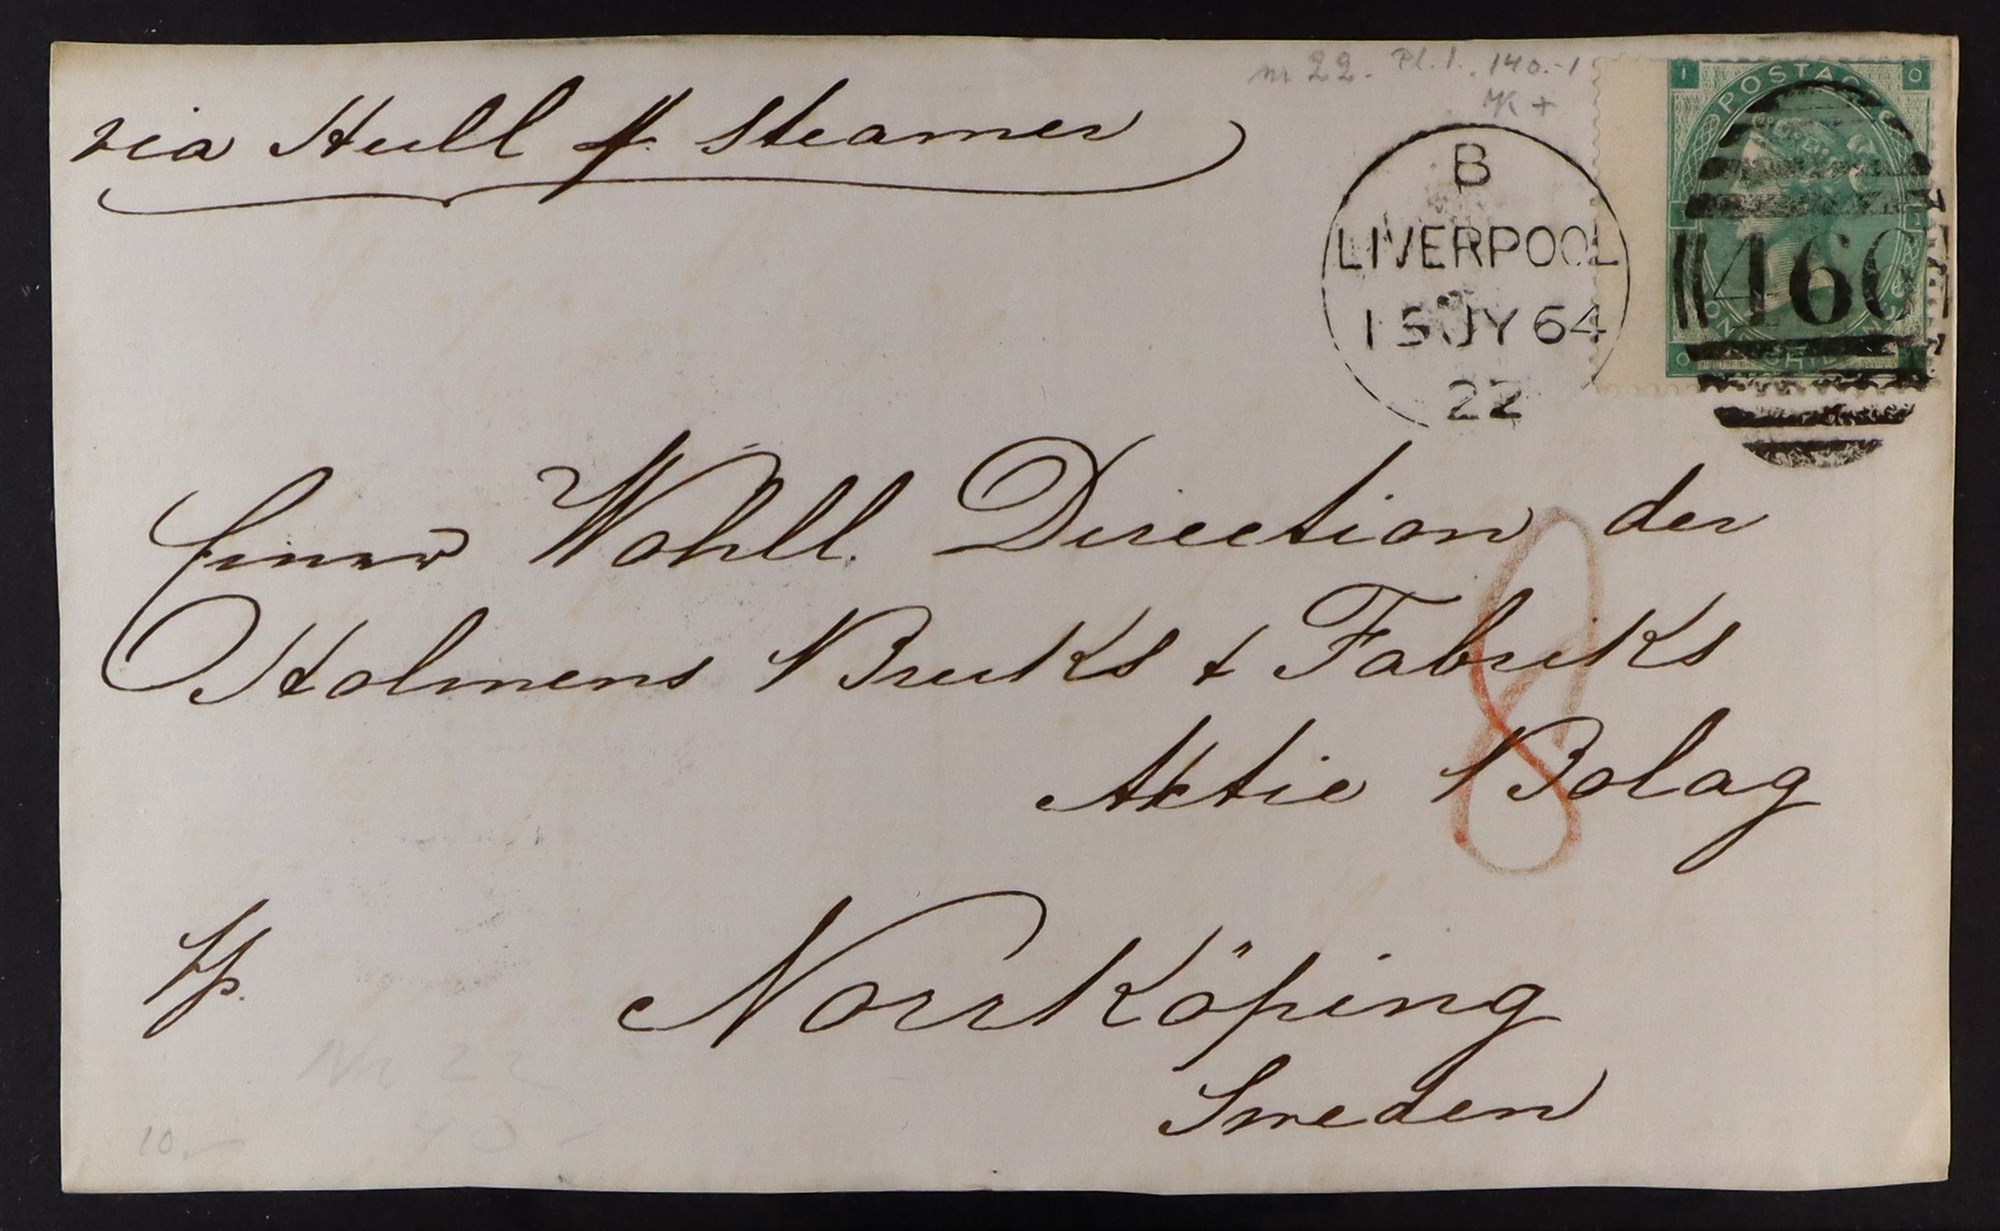 nr 22. Pl. 1. 140.-1
K +
via Hull p steamer
I POSTAGE O
B
LIVERPOOL
15 JY 64
22
466
ONE SHILLING
O I
Einer Wohll. Direction der
Holmens Bruks & Fabriks
Aktie Bolag
8
Norrköping
Sweden
Nr 22
40 -
10.-